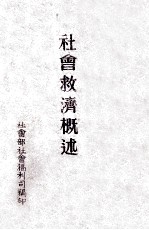 社會救濟概述
社會部社會福利司編印